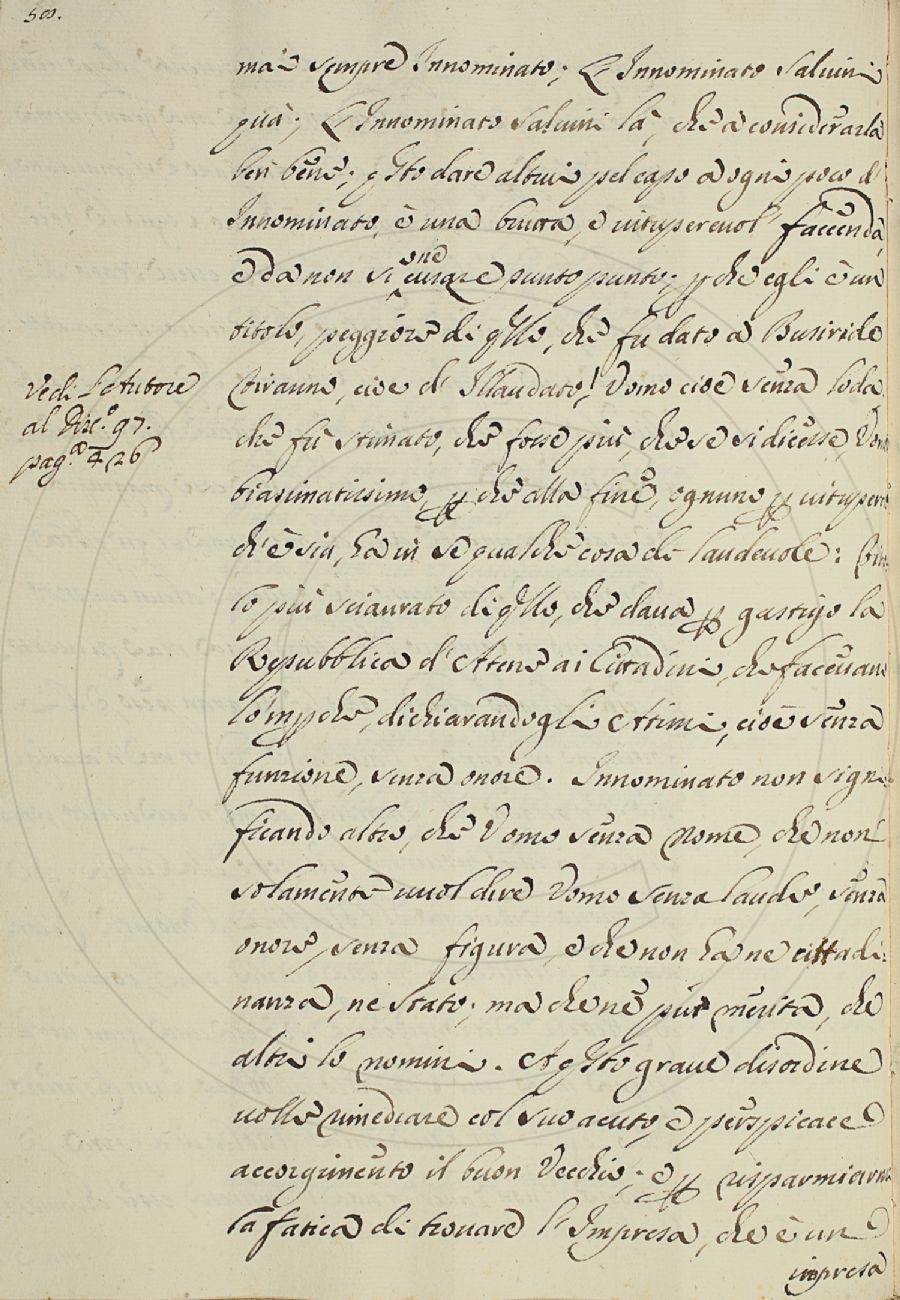 500.
mai sempre Innominato; L'Innominato Salvini
quà; L'Innominato Salvini là, che a considerarla
ben bene; q̃sto dare altrui pel capo a ogni poco d'
Innominato, è una brutta, e vituperevol' faccenda,
e da non si curare punto punto; p che egli è un
one
titolo, peggiore di q̃llo, che fu dato a Busiride
Tiranno, cioe d' Illaudato! Uomo cioè senza loda
che fù stimato, che fosse più, che se si dicesse, Uomo
biasimatissimo, p che alla fine, ognuno p vitupero
ch'è sia, hà in se qualche cosa di laudevole:
lo più sciaurato di q̃llo, che dava p gastigo la
Repubblica d'Atene ai Cittadini, che facevano
lo'mpche, dichiarandogli Atimi, cioè senza
funzione, senza onore. Innominato non signi-
ficando altro, che Uomo senza nome, che non
solamente vuol dire Uomo senza laude, senza
onore, senza figura, e che non hà ne cittadi:
nanza, ne stato; ma che nè più merita, che
altri lo nomini. A q̃sto grave disordine
volle rimediare col suo acuto, e perspicace
accorgimento il buon Vecchio; e p risparmiarmi
la fatica di trovare l'Impresa, che è un
impresa
Vedi L'Autore
al Disc.º 97.
pag.ª 426